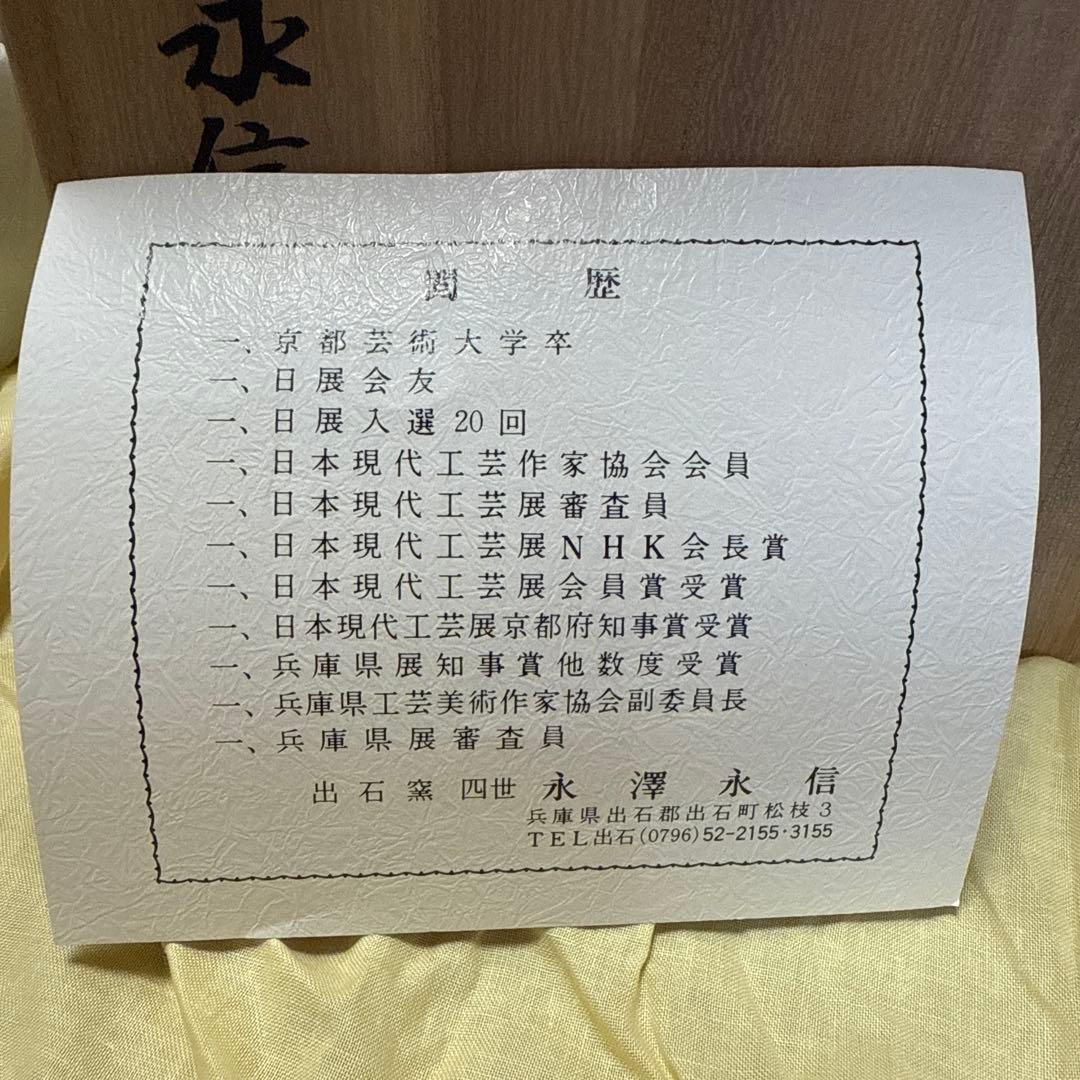 永信
閲歴
一、京都芸術大学卒
一、日展会友
一、日展入選20回
一、日本現代工芸作家協会会員
一、日本現代工芸展審査員
一、日本現代工芸展NHK会長賞
一、日本現代工芸展会員賞受賞
一、日本現代工芸展京都府知事賞受賞
一、兵庫県展知事賞他数度受賞
一、兵庫県工芸美術作家協会副委員長
一、兵庫県展審査員
出石窯 四世 永澤永信
兵庫県出石郡出石町松枝3
TEL出石(0796)52-2155・3155